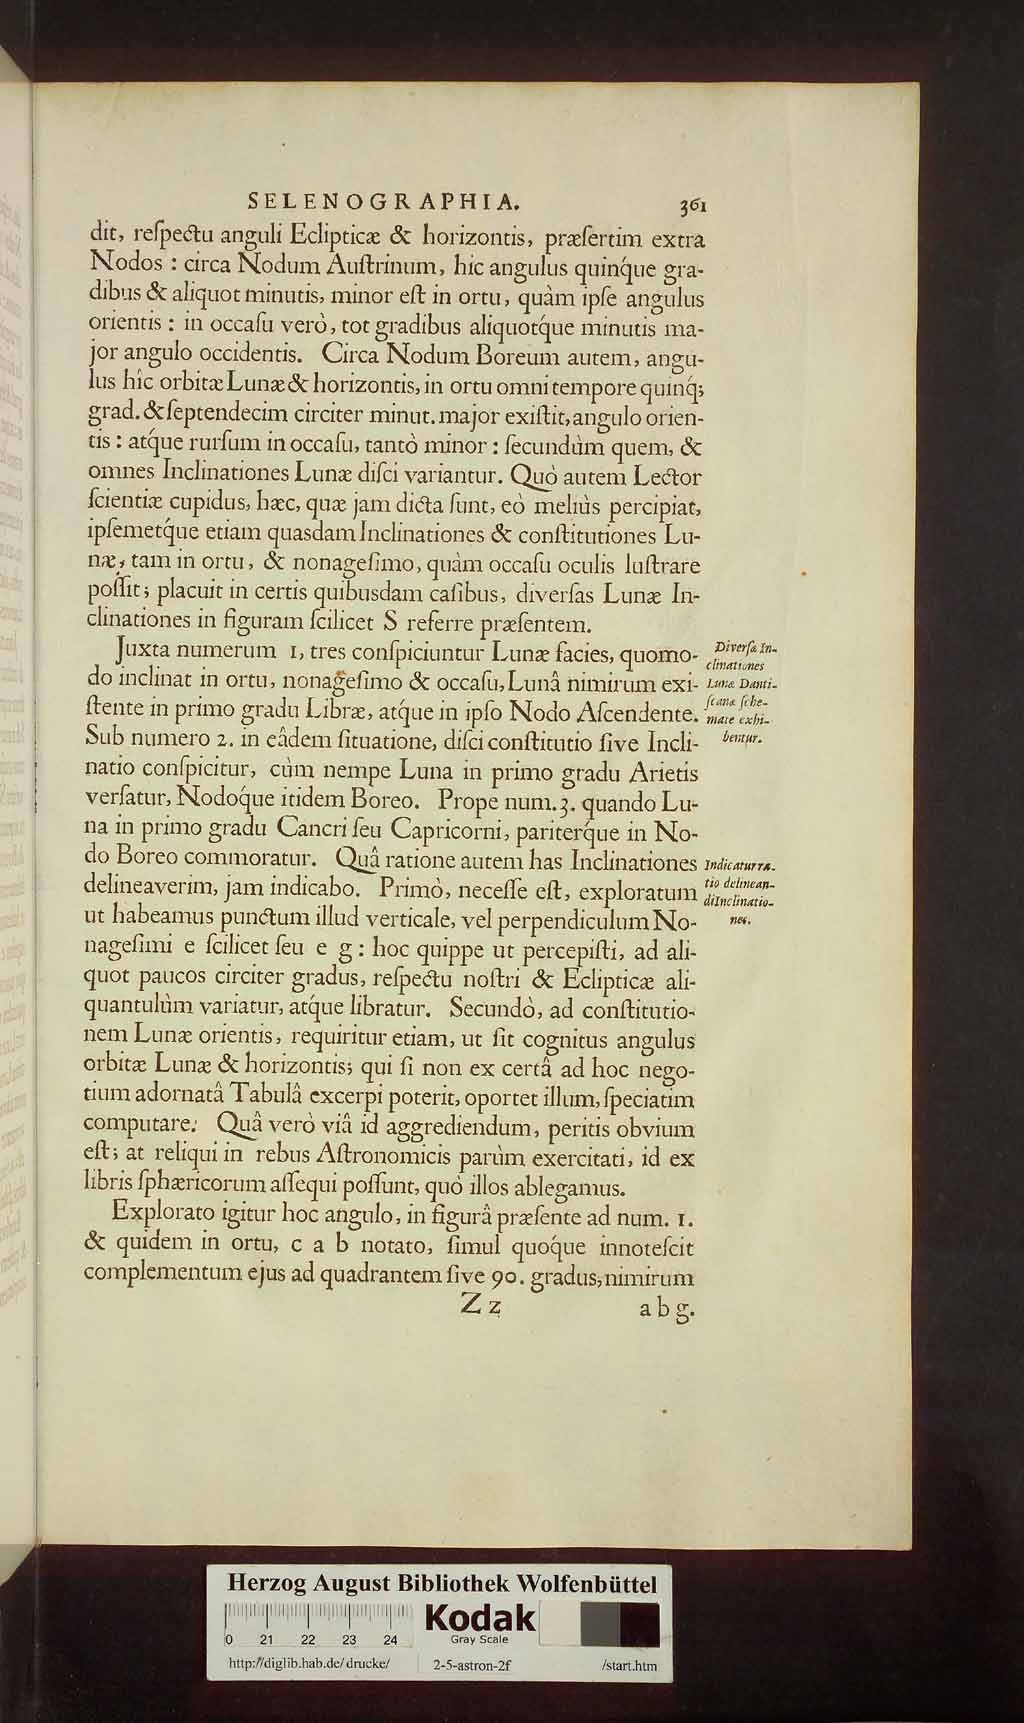 SELENOGRAPHIA. 361
dit, reſpectu anguli Eclipticæ & horizontis, præſertim extra
Nodos : circa Nodum Auſtrinum, hic angulus quinq́ue gra-
dibus & aliquot minutis, minor eſt in ortu, quàm ipſe angulus
orientis : in occaſu verò, tot gradibus aliquotq́ue minutis ma-
jor angulo occidentis. Circa Nodum Boreum autem, angu-
lus hîc orbitæ Lunæ & horizontis, in ortu omni tempore quinq́;
grad. & ſeptendecim circiter minut. major exiſtit, angulo orien-
tis : atq́ue rurſum in occaſu, tantò minor : ſecundùm quem, &
omnes Inclinationes Lunæ diſci variantur. Quò autem Lector
ſcientiæ cupidus, hæc, quæ jam dicta ſunt, eò meliùs percipiat,
ipſemetq́ue etiam quasdam Inclinationes & conſtitutiones Lu-
næ, tam in ortu, & nonageſimo, quàm occaſu oculis luſtrare
poſſit; placuit in certis quibusdam caſibus, diverſas Lunæ In-
clinationes in figuram ſcilicet S referre præſentem.
Juxta numerum 1, tres conſpiciuntur Lunæ facies, quomo-
do inclinat in ortu, nonageſimo & occaſu, Lunâ nimirum exi-
ſtente in primo gradu Libræ, atq́ue in ipſo Nodo Aſcendente.
Diverſæ In-
clinationes
Lunæ Danti-
ſcanæ ſche-
mate exhi-
bentur.
Sub numero 2. in eâdem ſituatione, diſci conſtitutio ſive Incli-
natio conſpicitur, cùm nempe Luna in primo gradu Arietis
verſatur, Nodoq́ue itidem Boreo. Prope num. 3. quando Lu-
na in primo gradu Cancri ſeu Capricorni, pariterq́ue in No-
do Boreo commoratur. Quâ ratione autem has Inclinationes
delineaverim, jam indicabo. Primò, neceſſe eſt, exploratum
ut habeamus punctum illud verticale, vel perpendiculum No-
Indicatur ra-
tio delinean-
di Inclinatio-
nes.
nageſimi e ſcilicet ſeu e g : hoc quippe ut percepiſti, ad ali-
quot paucos circiter gradus, reſpectu noſtri & Eclipticæ ali-
quantulùm variatur, atq́ue libratur. Secundò, ad conſtitutio-
nem Lunæ orientis, requiritur etiam, ut ſit cognitus angulus
orbitæ Lunæ & horizontis; qui ſi non ex certâ ad hoc nego-
tium adornatâ Tabulâ excerpi poterit, oportet illum, ſpeciatim
computare. Quâ verò viâ id aggrediendum, peritis obvium
eſt; at reliqui in rebus Aſtronomicis parùm exercitati, id ex
libris ſphæricorum aſſequi poſſunt, quò illos ablegamus.
Explorato igitur hoc angulo, in figurâ præſente ad num. 1.
& quidem in ortu, c a b notato, ſimul quoq́ue innoteſcit
complementum ejus ad quadrantem ſive 90. gradus, nimirum
Z z a b g.
Herzog August Bibliothek Wolfenbüttel
0 21 22 23 24
Kodak
Gray Scale
http://diglib.hab.de/drucke/ 2-5-astron-2f /start.htm